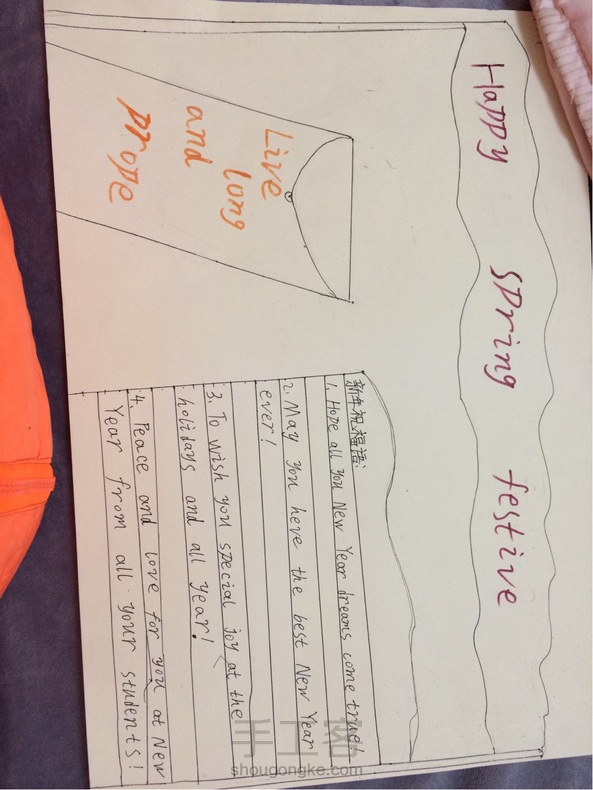 Happy Spring festive
Live
long
and
prope
新年祝福语:
1. Hope all you New Year dreams come true!
2. May you heve the best New Year
ever!
3. To wish you special joy at the
holidays and all year!
4. Peace and love for you at New
Year from all your students!
手工客
shougongke.com